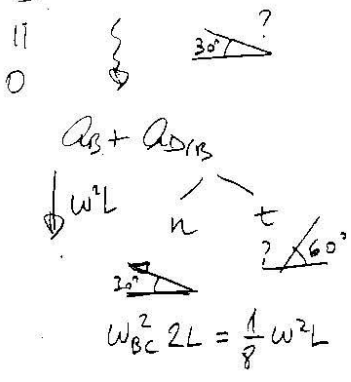 11
0
30° ?
a_B + a_D/B
ω²L n t
30° ? 60°
ω_BC² 2L = 1/8 ω²L